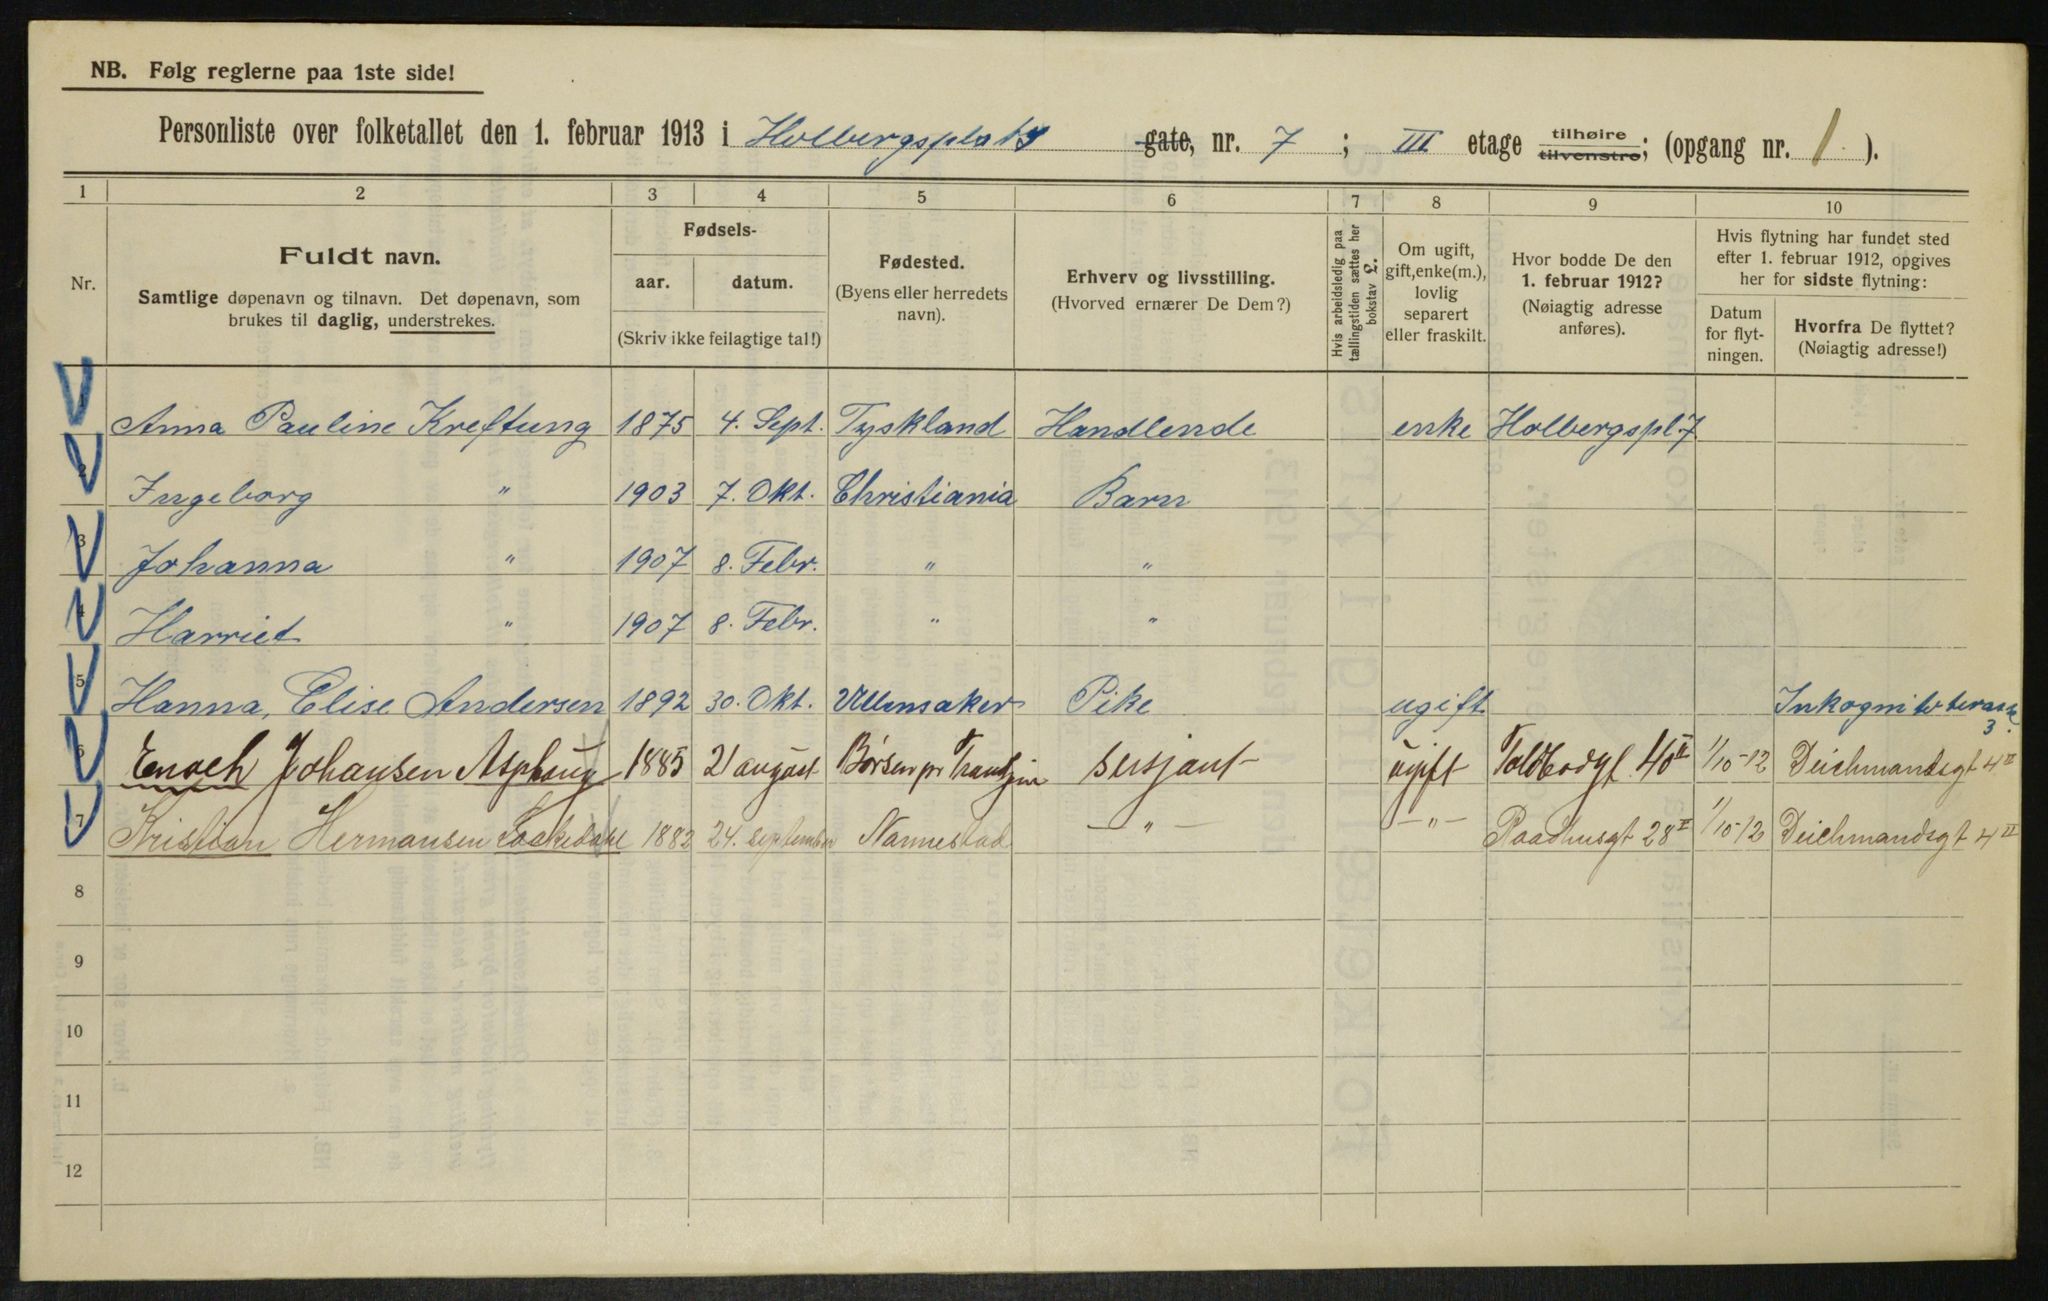 NB. Følg reglerne paa 1ste side!
Personliste over folketallet den 1. februar 1913 i Holbergsplats gate, nr. 7 ; III etage tilhøire tilvenstre; (opgang nr. 1 ).
1 2 3 4 5 6 7 8 9 10
Nr.
Fuldt navn.
Samtlige døpenavn og tilnavn. Det døpenavn, som
brukes til daglig, understrekes.
Fødsels-
aar. datum.
(Skriv ikke feilagtige tal!)
Fødested.
(Byens eller herredets
navn).
Erhverv og livsstilling.
(Hvorved ernærer De Dem?)
Hvis arbeidsledig paa
tællingstiden sættes her
bokstav L.
Om ugift,
gift, enke(m.),
lovlig
separert
eller fraskilt.
Hvor bodde De den
1. februar 1912?
(Nøiagtig adresse
anføres).
Hvis flytning har fundet sted
efter 1. februar 1912, opgives
her for sidste flytning:
Datum
for flyt-
ningen.
Hvorfra De flyttet?
(Nøiagtig adresse!)
Anna Pauline Kreftung 1875 4. Sept. Tyskland Handlende enke Holbergspl. 7
2 Ingeborg " 1903 7. Okt. Christiania Barn
3 Johanna " 1907 8. Febr. " "
4 Harriet " 1907 8. Febr. " "
5 Hanna, Elise Andersen 1892 30. Okt. Ullensaker Pike ugift Inkognitoterasse 3.
6 Enoch Johansen Asphaug 1885 21 august Børsen pr Trondhjem sersjant ugift Toldbodgt. 40 II 1/10-12 Deichmandsgt 4 II
7 Kristian Hermansen 1882 24. september Nannestad — " — — " — Raadhusgt 28 II 1/10-12 Deichmandsgt 4 II
8
9
10
11
12